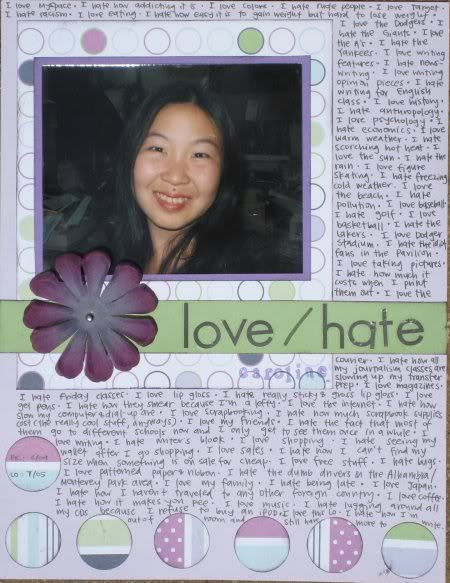 I love myspace • I hate how addicting it is • I love colors • I hate rude people • I love Target •
I hate racism • I love eating • I hate how easy it is to gain weight but hard to lose weight •
I love the Dodgers • I
hate the Giants • I love
the A's • I hate the
Yankees • I love writing
features • I hate news-
writing • I love writing
opinion pieces • I hate
writing for English
class • I love history •
I hate anthropology •
I love psychology • I
hate economics • I love
warm weather • I hate
scorching hot heat • I
love the sun • I hate the
rain • I love figure
skating • I hate freezing
cold weather • I love
the beach • I hate
pollution • I love baseball •
I hate golf • I love
basketball • I hate the
Lakers • I love Dodger
Stadium • I hate the
fans in the Pavilion •
I love taking pictures •
I hate how much it
costs when I print
them out • I love the
love/hate
caroline
courier • I hate how all
my journalism classes are
slowing up my transfer
prep • I love magazines •
I hate Friday classes • I love lip gloss • I hate really sticky & gross lip gloss • I love
gel pens • I hate how they smear because I'm a lefty • I love the internet • I hate how
slow my computer & dial-up are • I love scrapbooking • I hate how much scrapbook supplies
cost (the really cool stuff, anyways) • I love my friends • I hate the fact that most of
them go to different schools now and I only get to see them once in a while • I
love writing • I hate writer's block • I love shopping • I hate seeing my
wallet after I go shopping • I love sales • I hate how I can't find my
size when something is on sale for cheap • I love free stuff • I hate bugs •
I love patterned paper & ribbon • I hate the dumb drivers in the Alhambra/
Monterey Park area • I love my family • I hate being late • I love Japan •
I hate how I haven't traveled to any other foreign country • I love coffee •
I hate how it makes you pee • I love music • I hate lugging around all
my CDs because I refuse to buy an iPod • I love this LO • I hate how I'm
out of room and still have more to write.
LO: 7/05